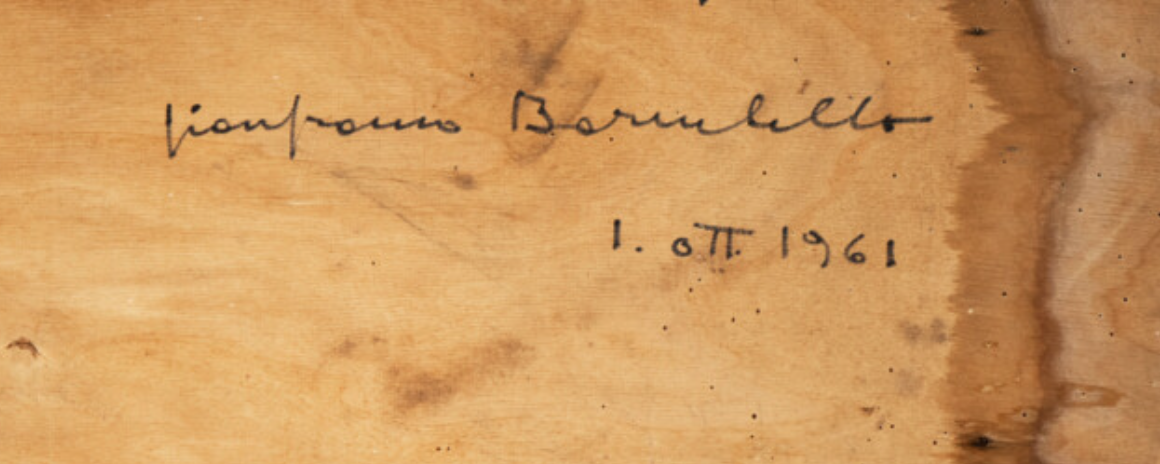 gianfranco Baruchello
1. ott 1961